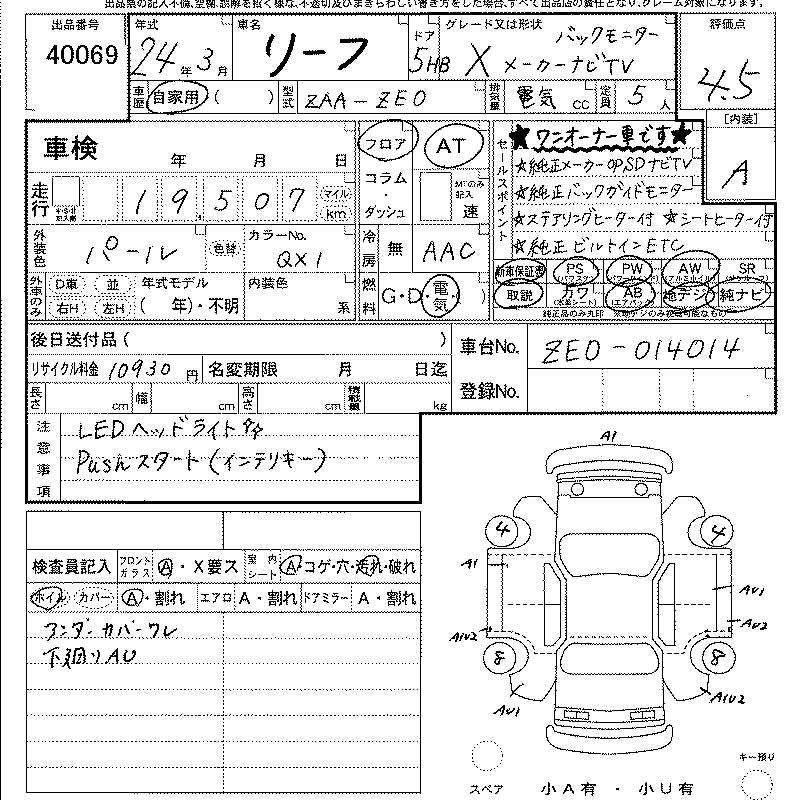 出品番号 40069
年式 24年3月
車名 リーフ
ドア 5HB
グレード又は形状 X バックモニター
メーカーナビTV
評価点 4.5
車歴 自家用 ( )
型式 ZAA-ZE0
排気量 電気 cc
定員 5 人
[内装] A
車検 年 月 日
フロア AT
セールスポイント ★ワンオーナー車です★
☆純正メーカーOPSDナビTV
走行 19507 マイル km
コラム・ダッシュ
MTのみ記入 速
☆純正バックガイドモニター
☆ステアリングヒーター付 ☆シートヒーター付
外装色 パール 色替
カラーNo. QX1
冷房 無 AAC
☆純正ビルトインETC
新車保証書 PS PW AW SR
外車のみ D車 並 右H 左H
年式モデル ( 年)・不明
内装色 系
燃料 G・D・電気・ )
取説 カワ AB 純デジ 純ナビ
後日送付品 ( )
車台No. ZE0-014014
リサイクル料金 10930 円
名変期限 月 日迄
登録No.
長さ cm 幅 cm 高さ cm 積載量 kg
注意事項 LEDヘッドライト付
Pushスタート(インテリキー)
検査員記入 フロントガラス A・X要ス
室内シート A・コゲ・穴・走れ・破れ
ホイル カバー A・割れ エアロ A・割れ ドアミラー A・割れ
アンダーカバーワレ
下廻りAU
A1
4 4
A1 AU1
A1U2 AU2
8 8
AU1 A1U2
キー預り
スペア 小A有 ・ 小U有